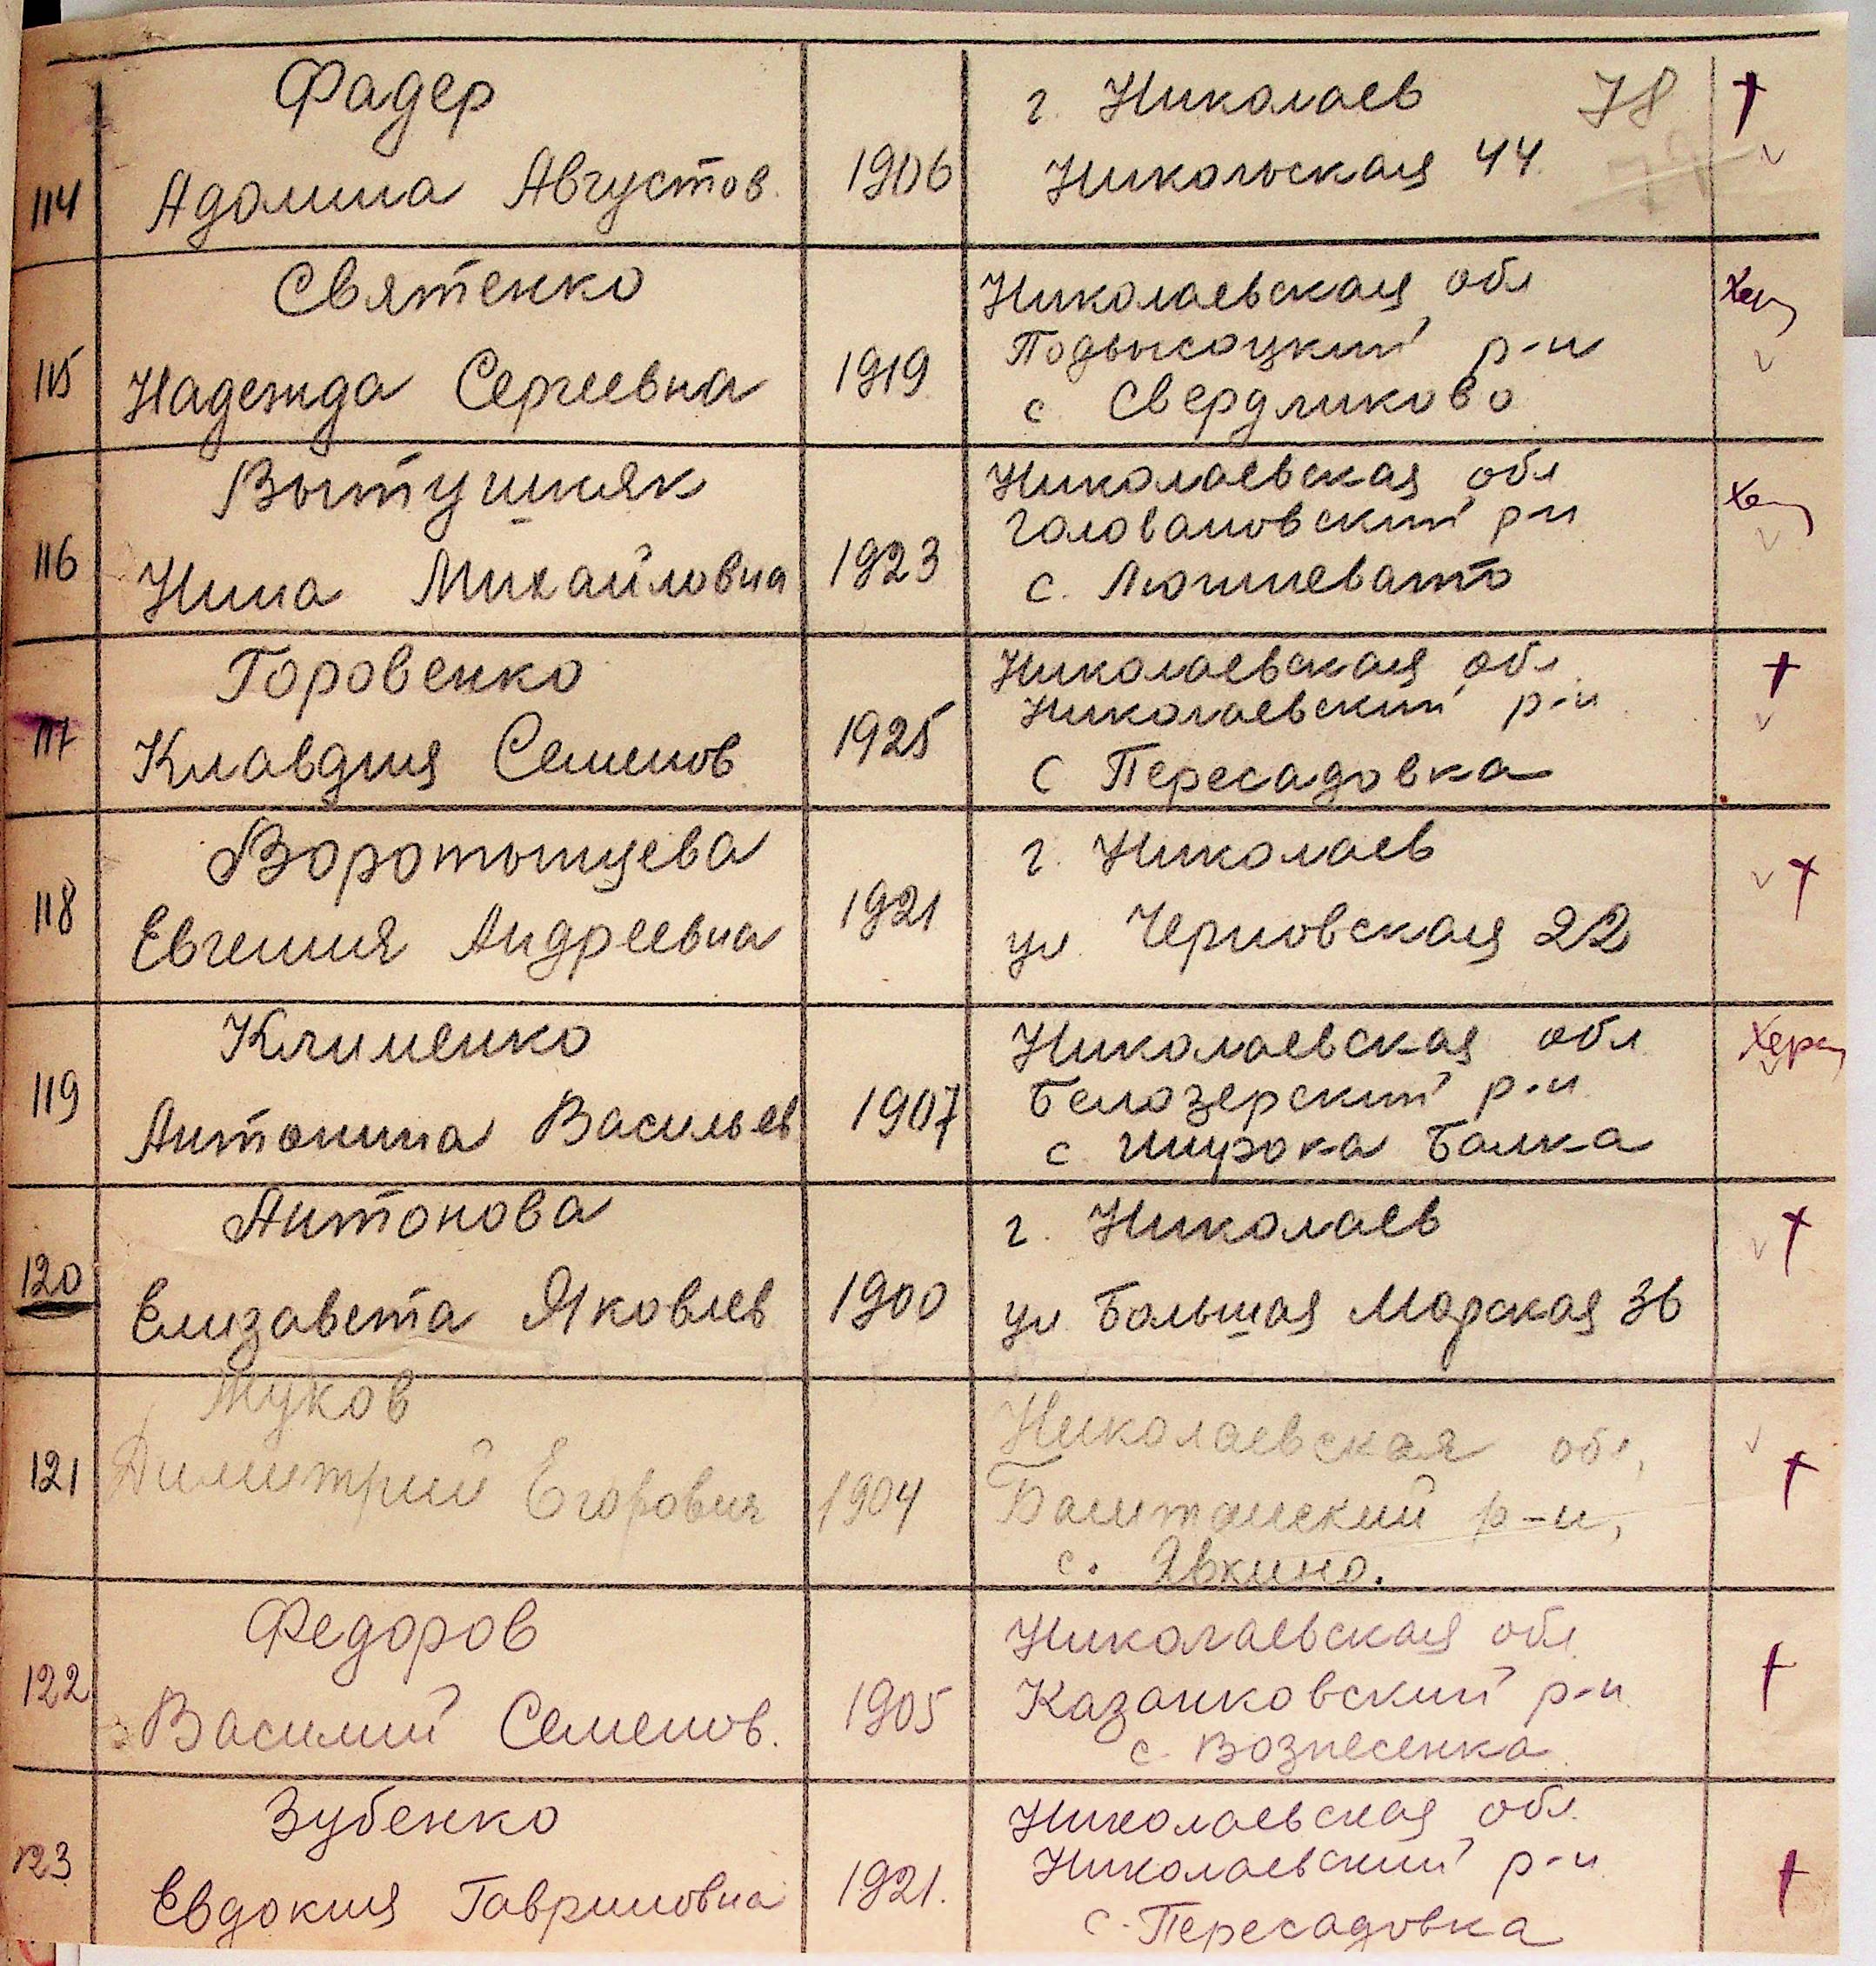 Фадер г. Николаев 78
114 Адолина Августов. 1906 Никольская 44.
Святенко Николаевская обл Хер
Подвысоцкий р-н
115 Надежда Сергеевна 1919 с Свердликово
Вытушняк Николаевская обл Хер
Головановский р-н
116 Нина Михайловна 1923 с. Люшневато
Горовенко Николаевская обл.
Николаевский р-н
117 Клавдия Семенов 1925 с Пересадовка
Воротынцева г. Николаев
118 Евгения Андреевна 1921 ул. Черновская 22
Клименко Николаевская обл Херс
Белозерский р-н
119 Антонина Васильев 1907 с Широка Балка
Антонова г. Николаев
120 Елизавета Яковлев 1900 ул. Большая Морская 36
Жуков Николаевская обл,
121 Димитрий Егорович 1904 Баштанский р-н,
с. Явкино.
Федоров Николаевская обл
122 Василий Семенов. 1905 Казанковский р-н
с. Вознесенка
Зубенко Николаевская обл.
Николаевский р-н
123 Евдокия Гавриловна 1921. с. Пересадовка